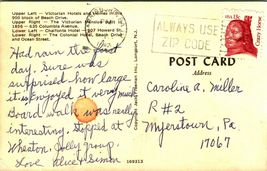 Upper Left - Victorian Hotels and
900 block of Beach Drive.
Upper Right - The Victorian
1896 - 635 Columbia Avenue.
Lower Left - Chalfonte Hotel - 307 Howard St.
Lower Right - The Colonial Hotel, Beach
and Ocean Street.
Had rain the first
day. Sure was
surprised how large
it is. Enjoyed it very much
Board walk was really
interesting, stopped at
Wheaton. Jolly group.
Love Alice & Simon
ALWAYS USE
ZIP CODE
USA 13c
Crazy Horse
POST CARD
Address
Caroline A. Miller
R #2
Myerstown, Pa
17067
169213